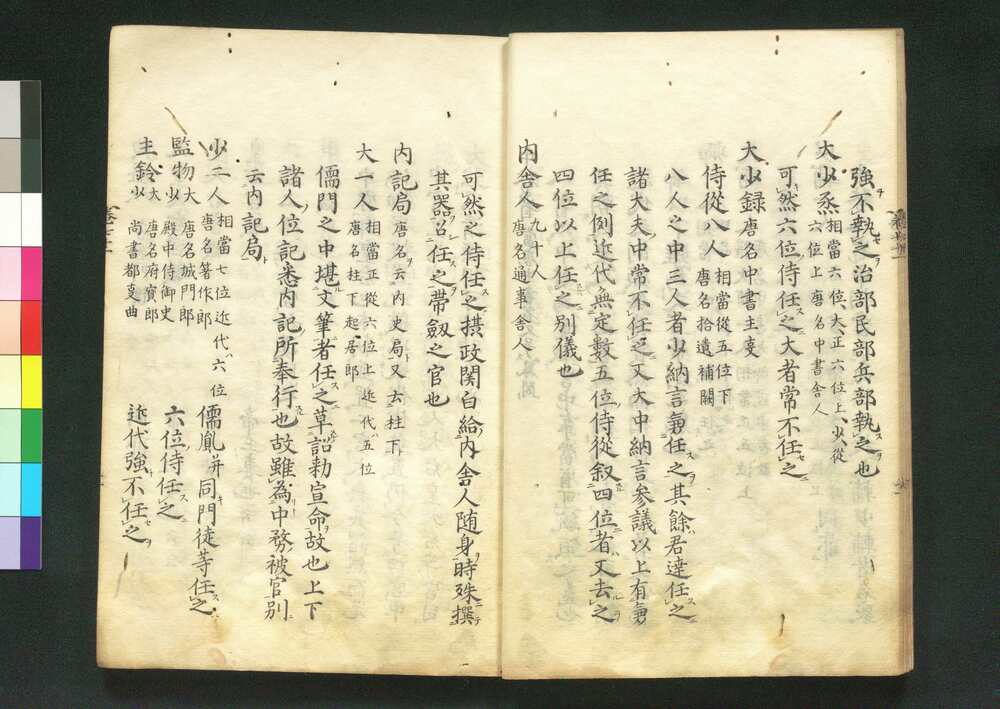 強不執之治部民部兵部執之也
大少丞 相當六位大正六位上少從
六位上 唐名中書舎人
可然六位侍任之大者常不任之
大少録 唐名中書主叓
侍從八人 相當從五位下
唐名拾遺補闕
八人之中三人者少納言兼任之其餘君達任之
諸大夫中常不任之又大中納言参議以上有兼
任之例近代無定数五位侍從叙四位者又去之
四位以上任之別儀也
内舎人 九十人
唐名通事舎人
可然之侍任之摂政関白給内舎人随身時殊撰
其器召任之帯劔之官也
内記局 唐名云内史局又云柱下
大一人 相當正從六位上近代五位
唐名柱下起居郎
儒門之中堪文筆者任之草詔勅宣命故也上下
諸人位記悉内記所奉行也故雖為中務被官別
云内記局
少二人 相當七位近代六位
唐名著作郎
儒胤并同門徒等任之
監物 大 唐名城門郎
少 殿中侍御史
六位侍任之
主鈴 大 唐名府寳郎
少 尚書都叓曲
近代強不任之